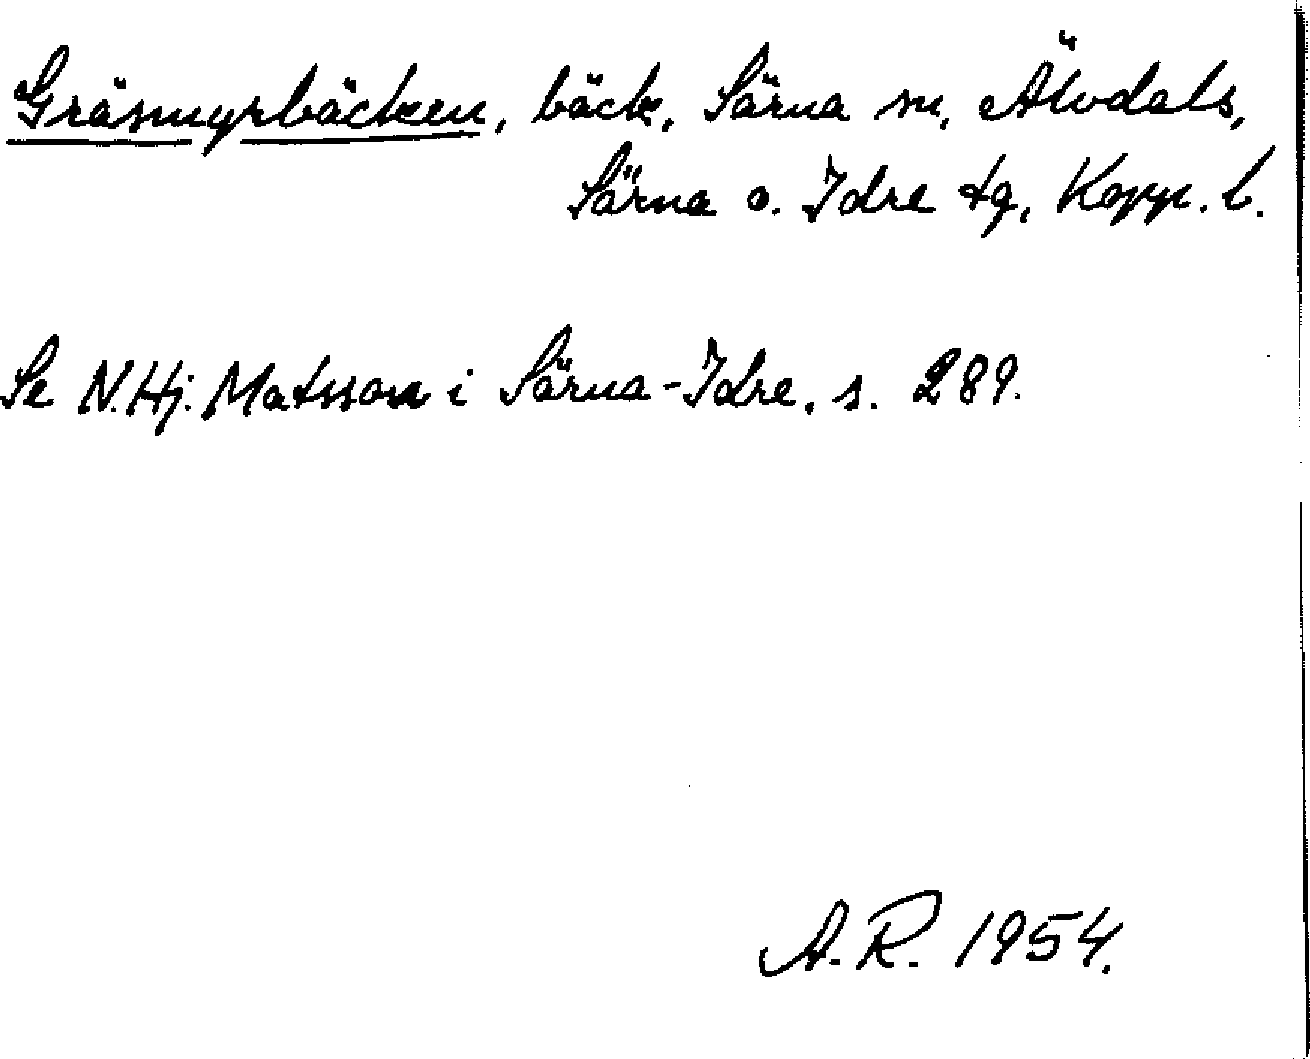 Gräsmyrbäcken, bäck, Särna sn, Älvdals,
Särna o. Idre tg, Kopp. l.
Se N. Hj. Matsson i Särna-Idre, s. 289.
A. R. 1954.